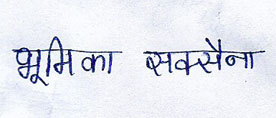 भूमिका सक्सैना